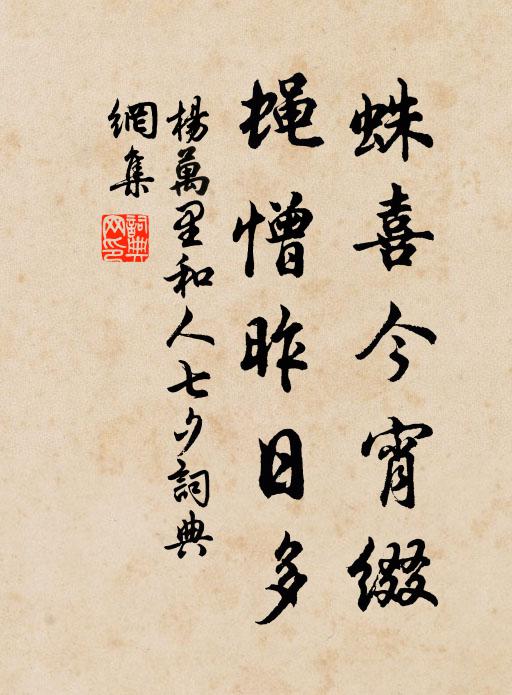 蛛喜今宵綴
蝇憎昨日多
楊萬里和人七夕詞典
網集
詞典网印